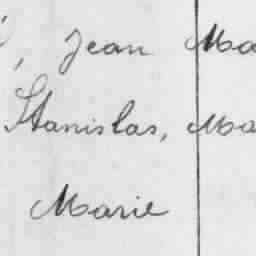 , Jean Ma
Stanislas, Ma
Marie